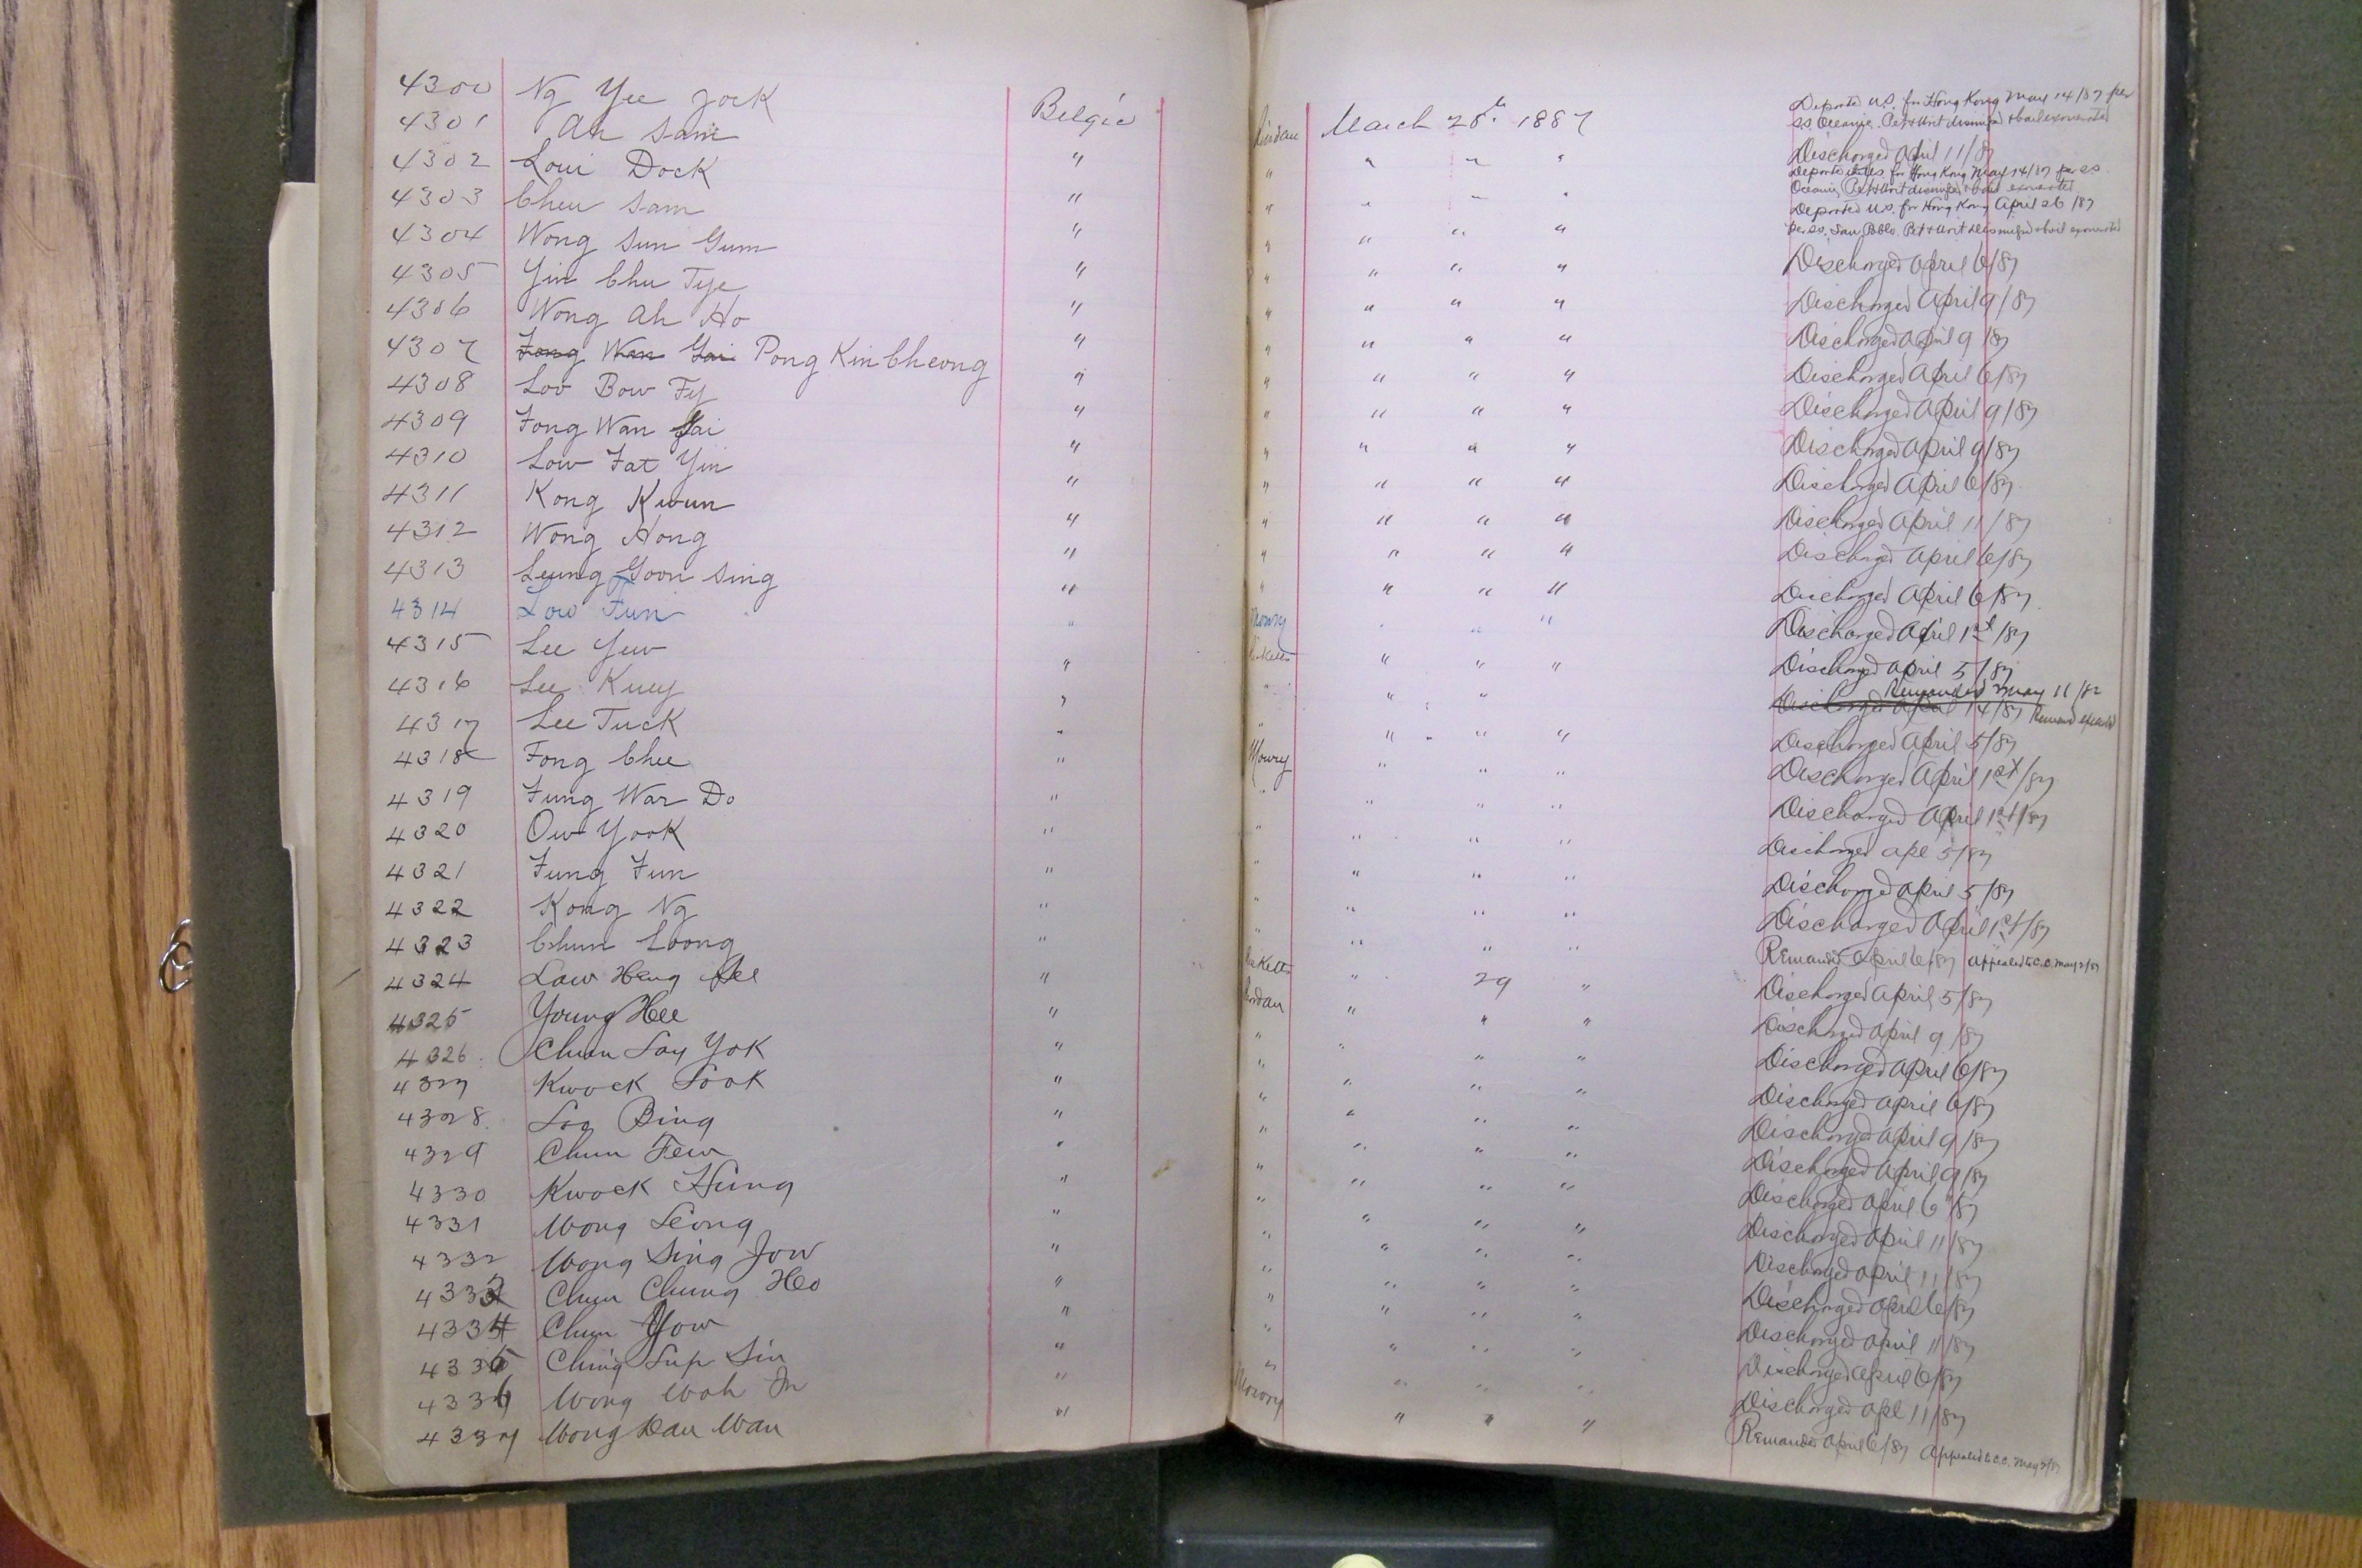 4300 Ng Yee Jock Belgic Riordan March 28th 1887 Deported U.S. for Hong Kong May 14/87 per
S.S. Oceanic. Pet & Writ dismissed & bail exonerated
4301 Ah Sam " " " " " Discharged April 11/87
4302 Loui Dock " " " " " Deported U.S. for Hong Kong May 14/87 per SS
Oceanic Pet & Writ dismissed & bail exonerated
4303 Chew Sam " " " " " Deported U.S. for Hong Kong April 26/87
per SS. San Pablo. Pet & Writ dismissed & bail exonerated
4304 Wong Sun Gum " " " " " Discharged April 6/87
4305 Yin Chu Tye " " " " " Discharged April 9/87
4306 Wong Ah Ho " " " " " Discharged April 9/87
4307 Fong Wan Gai Pong Kin Cheong " " " " " Discharged April 6/87
4308 Loo Bow Fy " " " " " Discharged April 9/87
4309 Fong Wan Gai " " " " " Discharged April 9/87
4310 Low Fat Yin " " " " " Discharged April 6/87
4311 Kong Kwun " " " " " Discharged April 11/87
4312 Wong Hong " " " " " Discharged April 6/87
4313 Leung Goon Sing " " " " " Discharged April 6/87
4314 Low Fun " Mowry " " " Discharged April 1st/87
4315 Lee Yuw " Ricketts " " " Discharged April 5/87
4316 Lee Kuey " " " " Remanded May 11/87
Discharged April 14/87 Remand
4317 Lee Tuck " " " " " Discharged April 5/87
4318 Fong Chee " Mowry " " " Discharged April 1st/87
4319 Fung War Do " " " " " Discharged April 1st/87
4320 Ow Yook " " " " " Discharged Apl 5/87
4321 Fung Fun " " " " " Discharged April 5/87
4322 Kong Ng " " " " " Discharged April 1st/87
4323 Chun Loong " " " " " Remanded April 6/87 Appealed to C.C. May 2/87
4324 Law Heng " Ricketts " 29 " Discharged April 5/87
4325 Young Hee " Riordan " " " Discharged April 9/87
4326 Chun Lay Yok " " " " " Discharged April 6/87
4327 Kwock Look " " " " " Discharged April 6/87
4328 Loo Bing " " " " " Discharged April 9/87
4329 Chun Few " " " " " Discharged April 9/87
4330 Kwock Hung " " " " " Discharged April 6/87
4331 Wong Leong " " " " " Discharged April 11/87
4332 Wong Sing Jow " " " " " Discharged April 11/87
4333 Chun Chung Heo " " " " " Discharged April 6/87
4334 Chun Yow " " " " " Discharged April 11/87
4335 Ching Sup Sin " " " " " Discharged April 6/87
4336 Wong Woh In " Mowry " " " Discharged Apl 11/87
4337 Wong Dau Wau " " " " Remanded April 6/87 Appealed to C.C. May 2/87